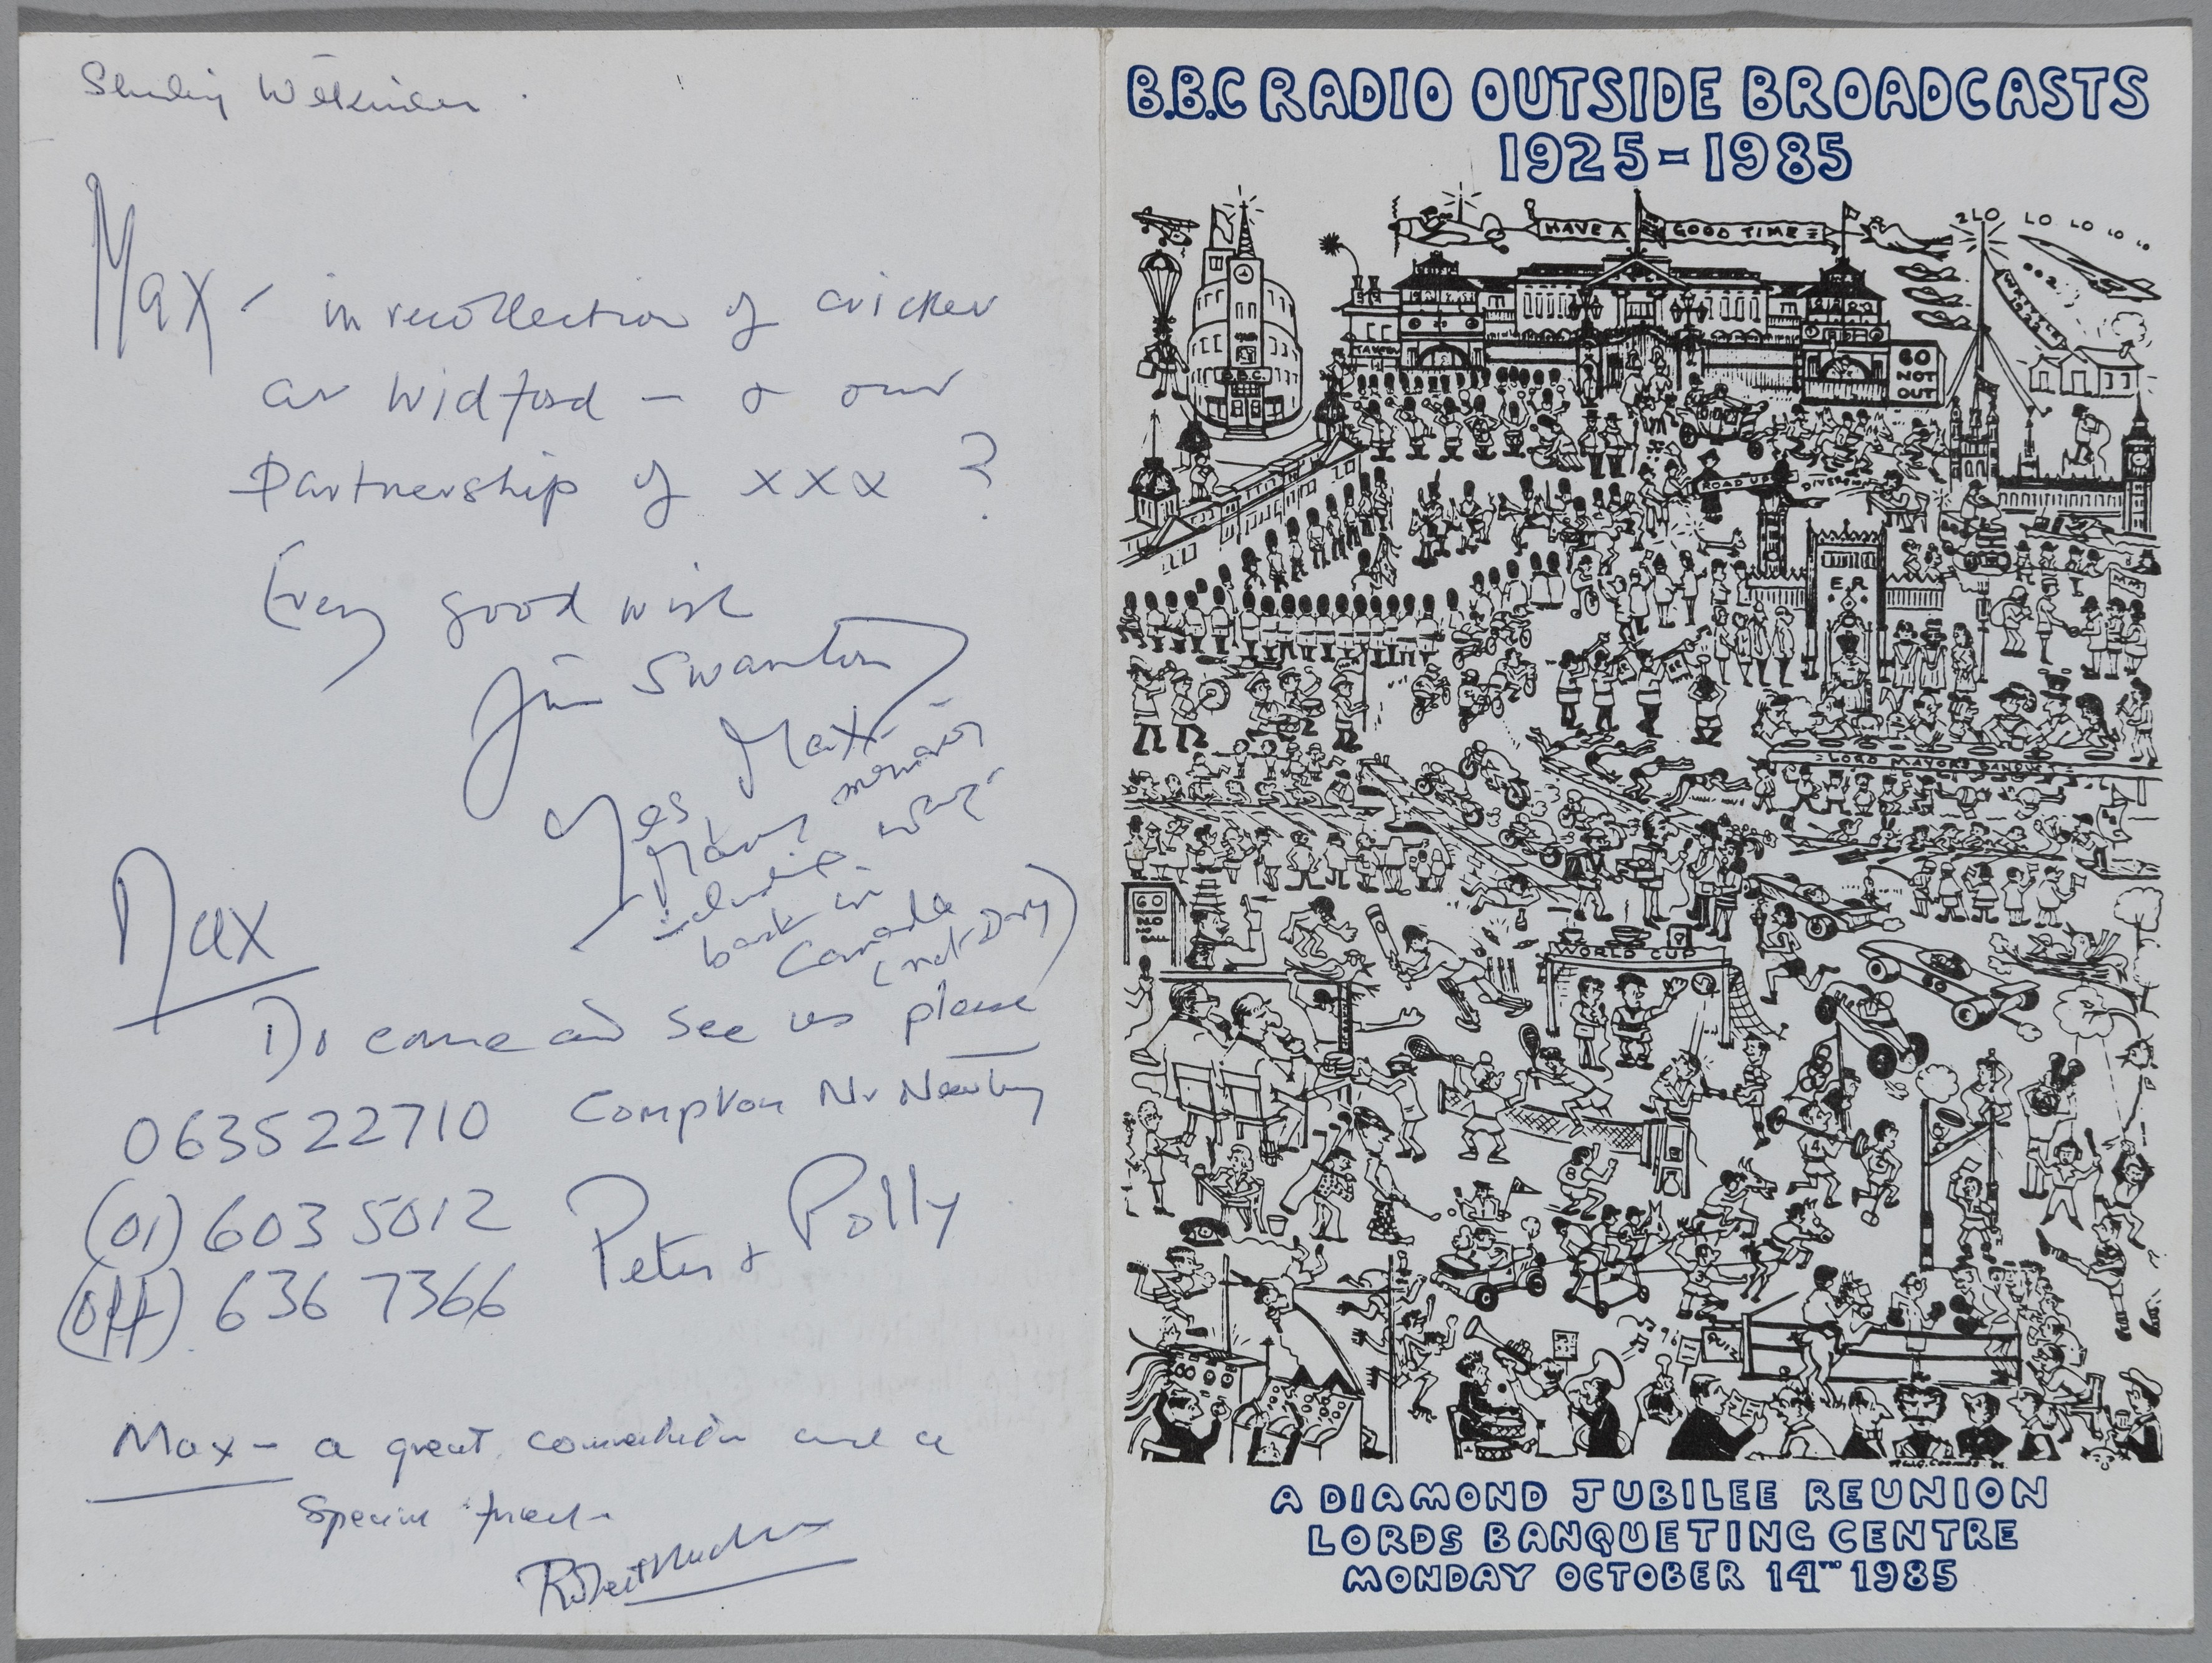 Max - in recollection of cricket
at Widford - & our
Partnership of xxx ?
Every good wish
Jim Swanton
Max -
Yes
Many memories
including
back in
Canada
(not Day)
Max
Do come and see us please
063522710 Compton Nr Newbury
(01) 603 5012
Peter & Polly
(Off) 636 7366
Max - a great commentator and a
special friend -
Robert Hudson
B.B.C RADIO OUTSIDE BROADCASTS
1925-1985
HAVE A GOOD TIME
2LO LO LO LO LO
002
WRITTLE
1922
B.B.C.
TAVERN
60
NOT
OUT
ROAD UP
DIVERSION
E.R.
LORD MAYORS BANQUET
60
NO
BALL
WORLD CUP
60
QUIZ
A DIAMOND JUBILEE REUNION
LORDS BANQUETING CENTRE
MONDAY OCTOBER 14TH 1985